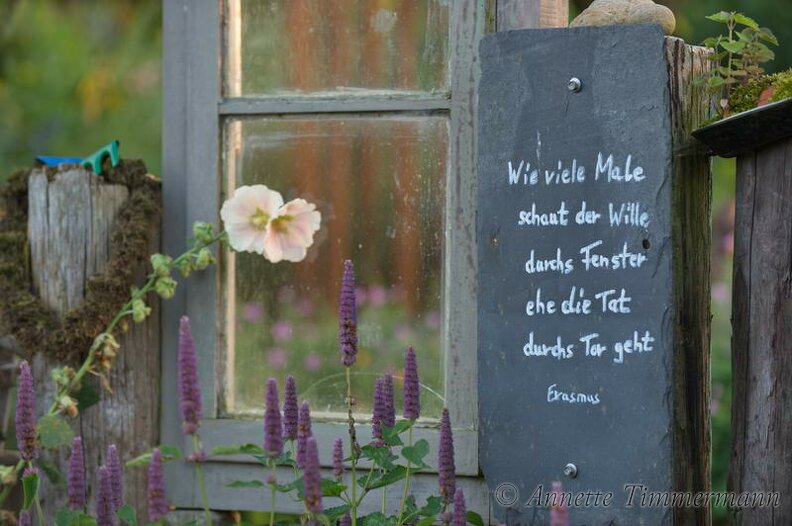 Wie viele Male
schaut der Wille
durchs Fenster
ehe die Tat
durchs Tor geht
Erasmus
© Annette Timmermann